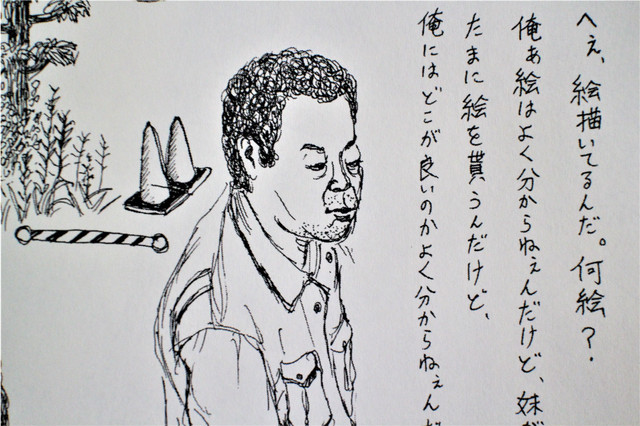 へぇ、絵描いてるんだ。何絵?
俺ぁ絵はよく分からねぇんだけど、妹が
たまに絵を貰うんだけど、
俺にはどこが良いのかよく分からねぇんだ